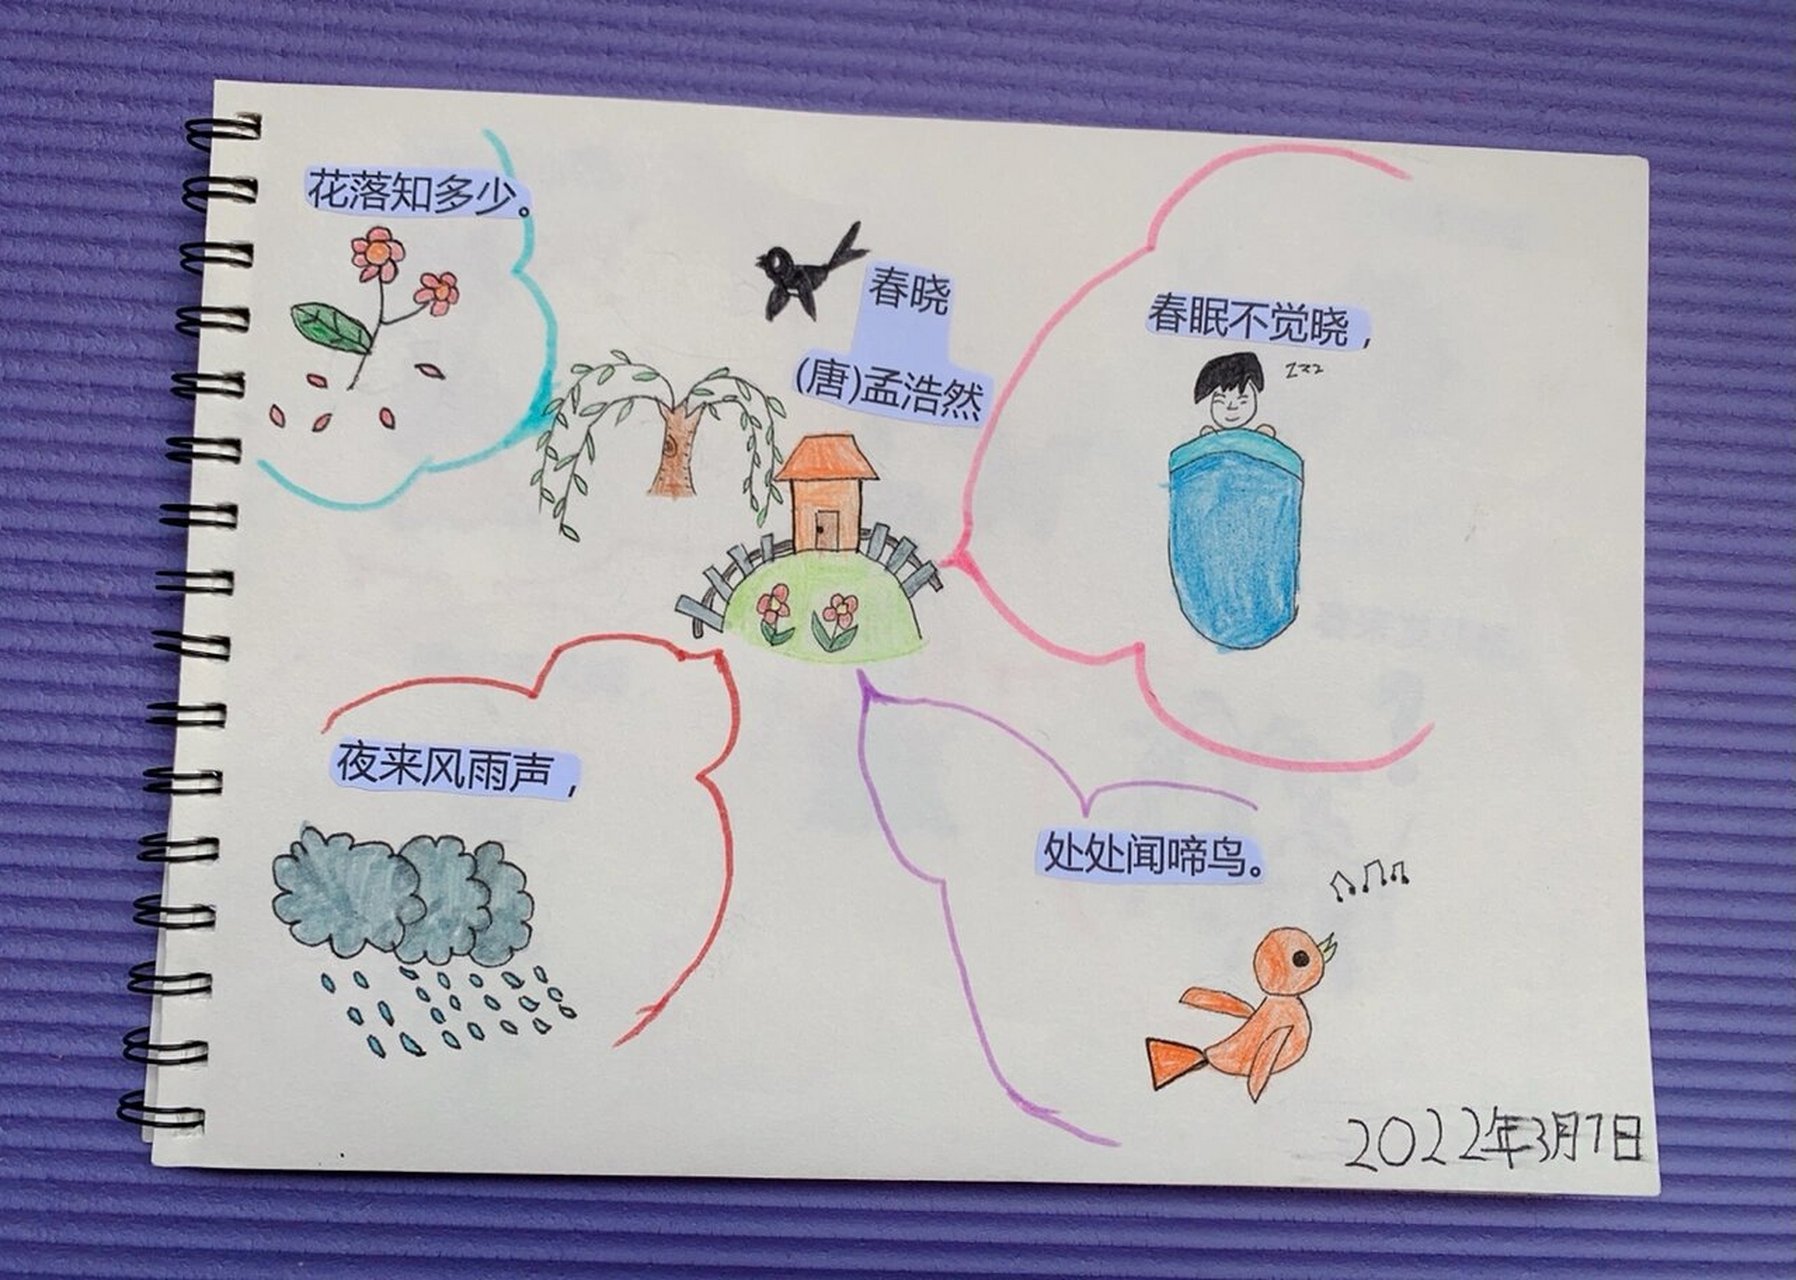 春晓
(唐)孟浩然
春眠不觉晓，
zzz
处处闻啼鸟。
夜来风雨声，
花落知多少。
2022年3月7日